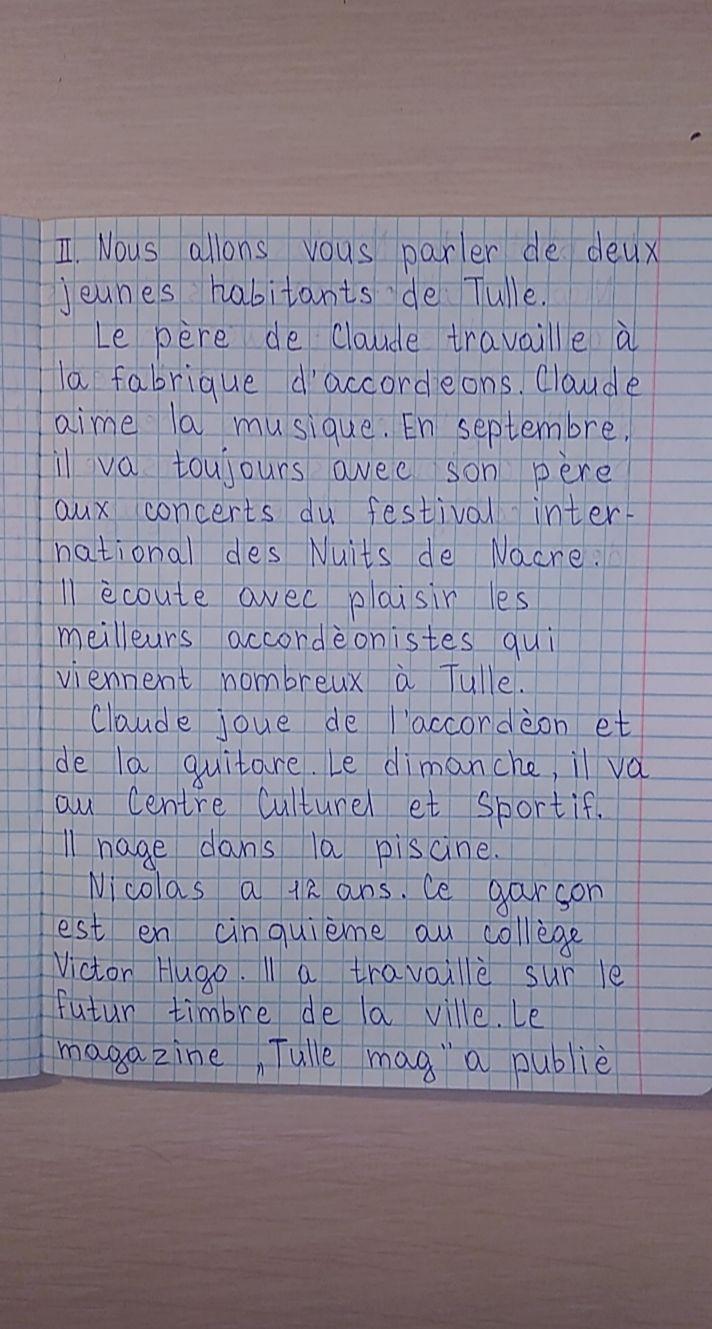 II. Nous allons vous parler de deux
jeunes habitants de Tulle.
Le père de Claude travaille à
la fabrique d'accordeons. Claude
aime la musique. En septembre,
il va toujours avec son père
aux concerts du festival inter-
national des Nuits de Nacre.
Il ècoute avec plaisir les
meilleurs accordèonistes qui
viennent nombreux à Tulle.
Claude joue de l'accordèon et
de la guitare. Le dimanche, il va
au Centre Culturel et Sportif.
Il nage dans la piscine.
Nicolas a 12 ans. Ce garçon
est en cinquième au collège
Victor Hugo. Il a travaillè sur le
futur timbre de la ville. Le
magazine „Tulle mag" a publiè